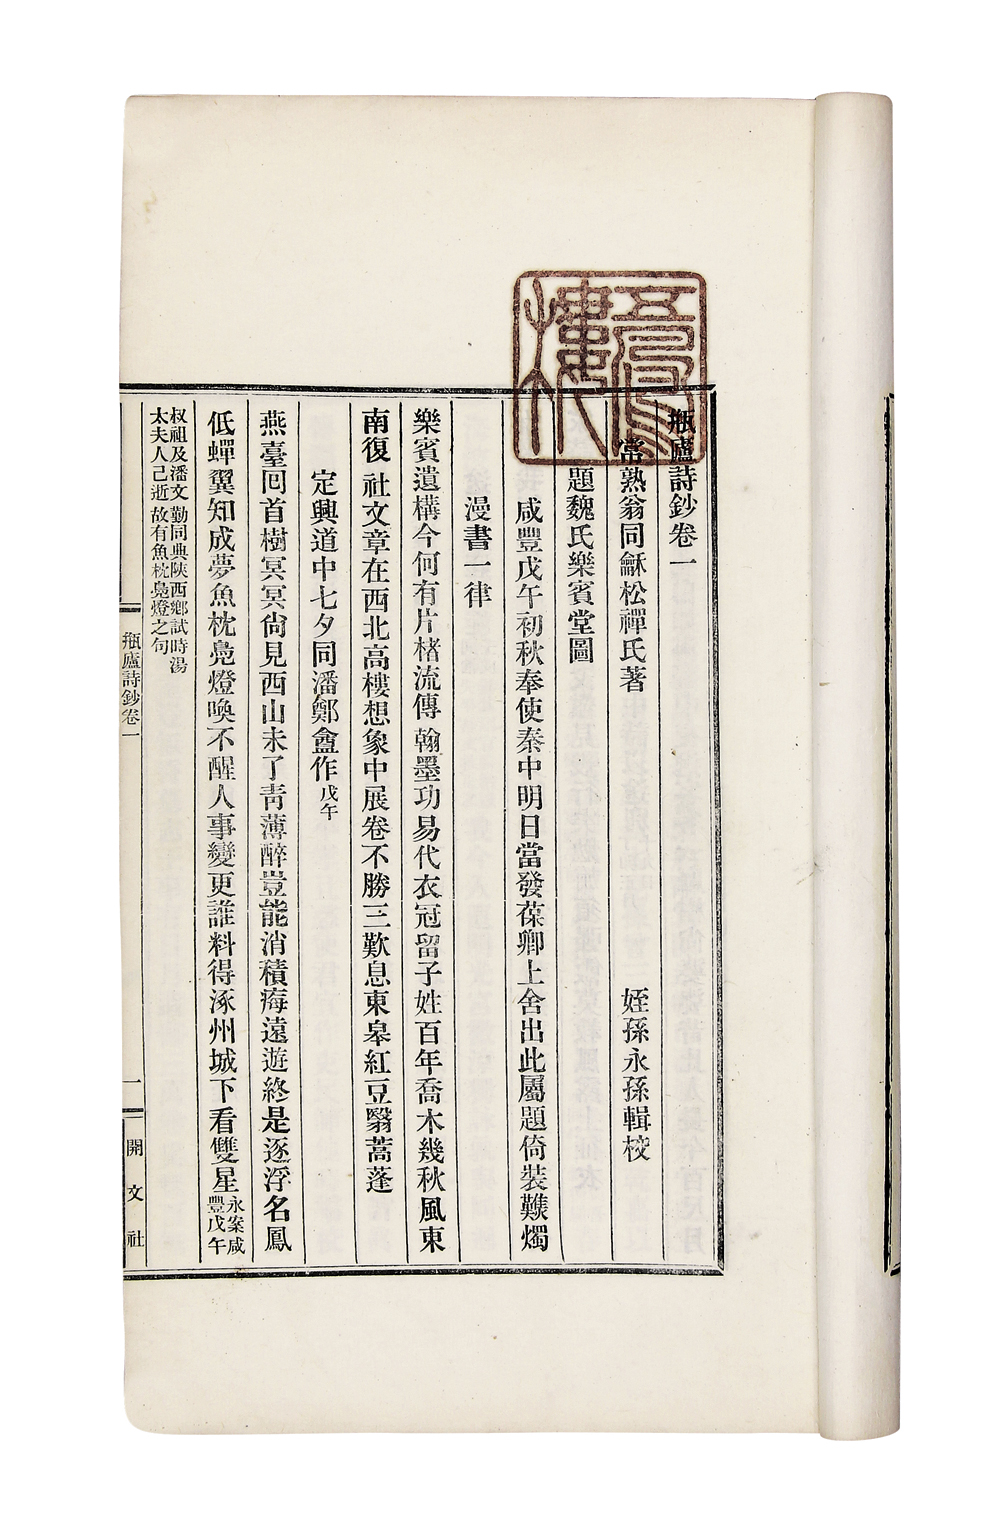 瓶廬詩鈔卷一
常熟翁同龢松禪氏著　姪孫永孫輯校
題魏氏樂賓堂圖
咸豐戊午初秋奉使秦中明日當發葆卿上舍出此屬題倚裝爇燭
漫書一律
樂賓遺構今何有片楮流傳翰墨功易代衣冠留子姓百年喬木幾秋風東
南復社文章在西北高樓想象中展卷不勝三歎息東皋紅豆翳蒿蓬
定興道中七夕同潘鄭盦作戊午
燕臺回首樹冥冥尚見西山未了靑薄醉豈能消積痗遠遊終是逐浮名鳳
低蟬翼知成夢魚枕鳧燈喚不醒人事變更誰料得涿州城下看雙星永案咸
豐戊午
叔祖及潘文勤同典陝西鄉試時湯
太夫人已逝故有魚枕鳧燈之句
瓶廬詩鈔卷一
一
開文社